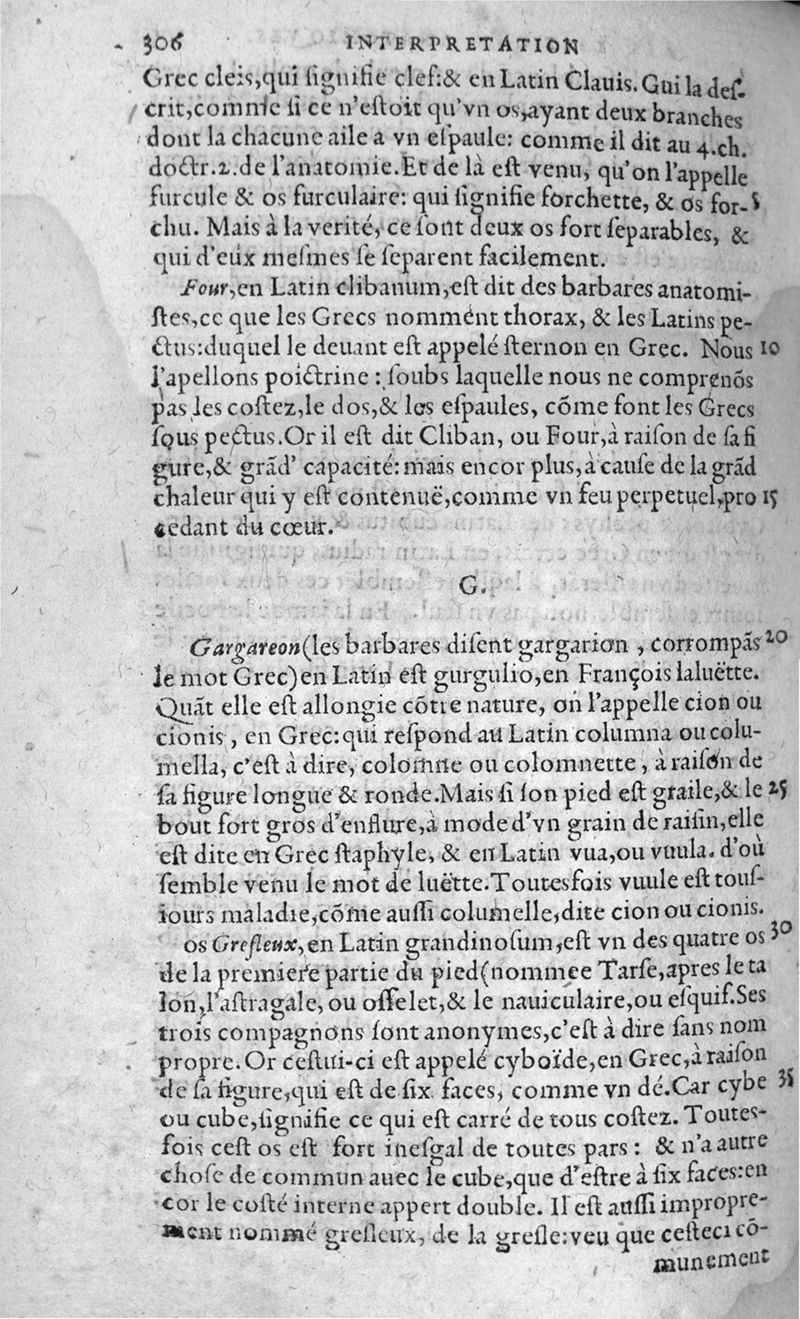 306 INTERPRETATION
Grec cleis,qui ſignifie clef:& en Latin Clauis. Gui la deſ-
crit,comme ſi ce n'eſtoit qu'vn os,ayant deux branches
dont la chacune aile a vn eſpaule: comme il dit au 4.ch.
doctr.2.de l'anatomie.Et de là eſt venu, qu'on l'appelle
furcule & os furculaire: qui ſignifie forchette, & os for- 5
chu. Mais à la verité, ce ſont deux os fort ſeparables, &
qui d'eux meſmes ſe ſeparent facilement.
Four,en Latin clibanum,eſt dit des barbares anatomi-
ſtes,ce que les Grecs nomment thorax, & les Latins pe-
ctus:duquel le deuant eſt appelé ſternon en Grec. Nous 10
l'apellons poictrine : ſoubs laquelle nous ne comprenõs
pas les coſtez,le dos,& les eſpaules, cõme font les Grecs
ſous pectus.Or il eſt dit Cliban, ou Four,à raiſon de ſa fi
gure,& grãd' capacité: mais encor plus,à cauſe de la grãd
chaleur qui y eſt contenuë,comme vn feu perpetuel,pro 15
cedant du cœur.
G.
Gargareon(les barbares diſent gargarion , corrompãs 20
le mot Grec)en Latin eſt gurgulio,en François laluëtte.
Quãt elle eſt allongie cõtre nature, on l'appelle cion ou
cionis , en Grec:qui reſpond au Latin columna ou colu-
mella, c'eſt à dire, colomne ou colomnette , à raiſon de
ſa figure longue & ronde.Mais ſi ſon pied eſt graile,& le 25
bout fort gros d'enflure,à mode d'vn grain de raiſin,elle
eſt dite en Grec ſtaphyle, & en Latin vua,ou vuula. d'où
ſemble venu le mot de luëtte.Toutesfois vuule eſt touſ-
iours maladie,cõme auſſi columelle,dite cion ou cionis.
os Greſleux,en Latin grandinoſum,eſt vn des quatre os 30
de la premiere partie du pied(nommee Tarſe,apres le ta
lon,l'aſtragale, ou oſſelet,& le nauiculaire,ou eſquif.Ses
trois compagnons ſont anonymes,c'eſt à dire ſans nom
propre. Or ceſtui-ci eſt appelé cyboïde,en Grec,à raiſon
de ſa figure,qui eſt de ſix faces, comme vn dé.Car cybe 35
ou cube,ſignifie ce qui eſt carré de tous coſtez. Toutes-
fois ceſt os eſt fort ineſgal de toutes pars : & n'a autre
choſe de commun auec le cube,que d'eſtre à ſix faces:en
cor le coſté interne appert double. Il eſt auſſi impropre-
ment nommé greſleux, de la greſle:veu que ceſteci cõ-
munement